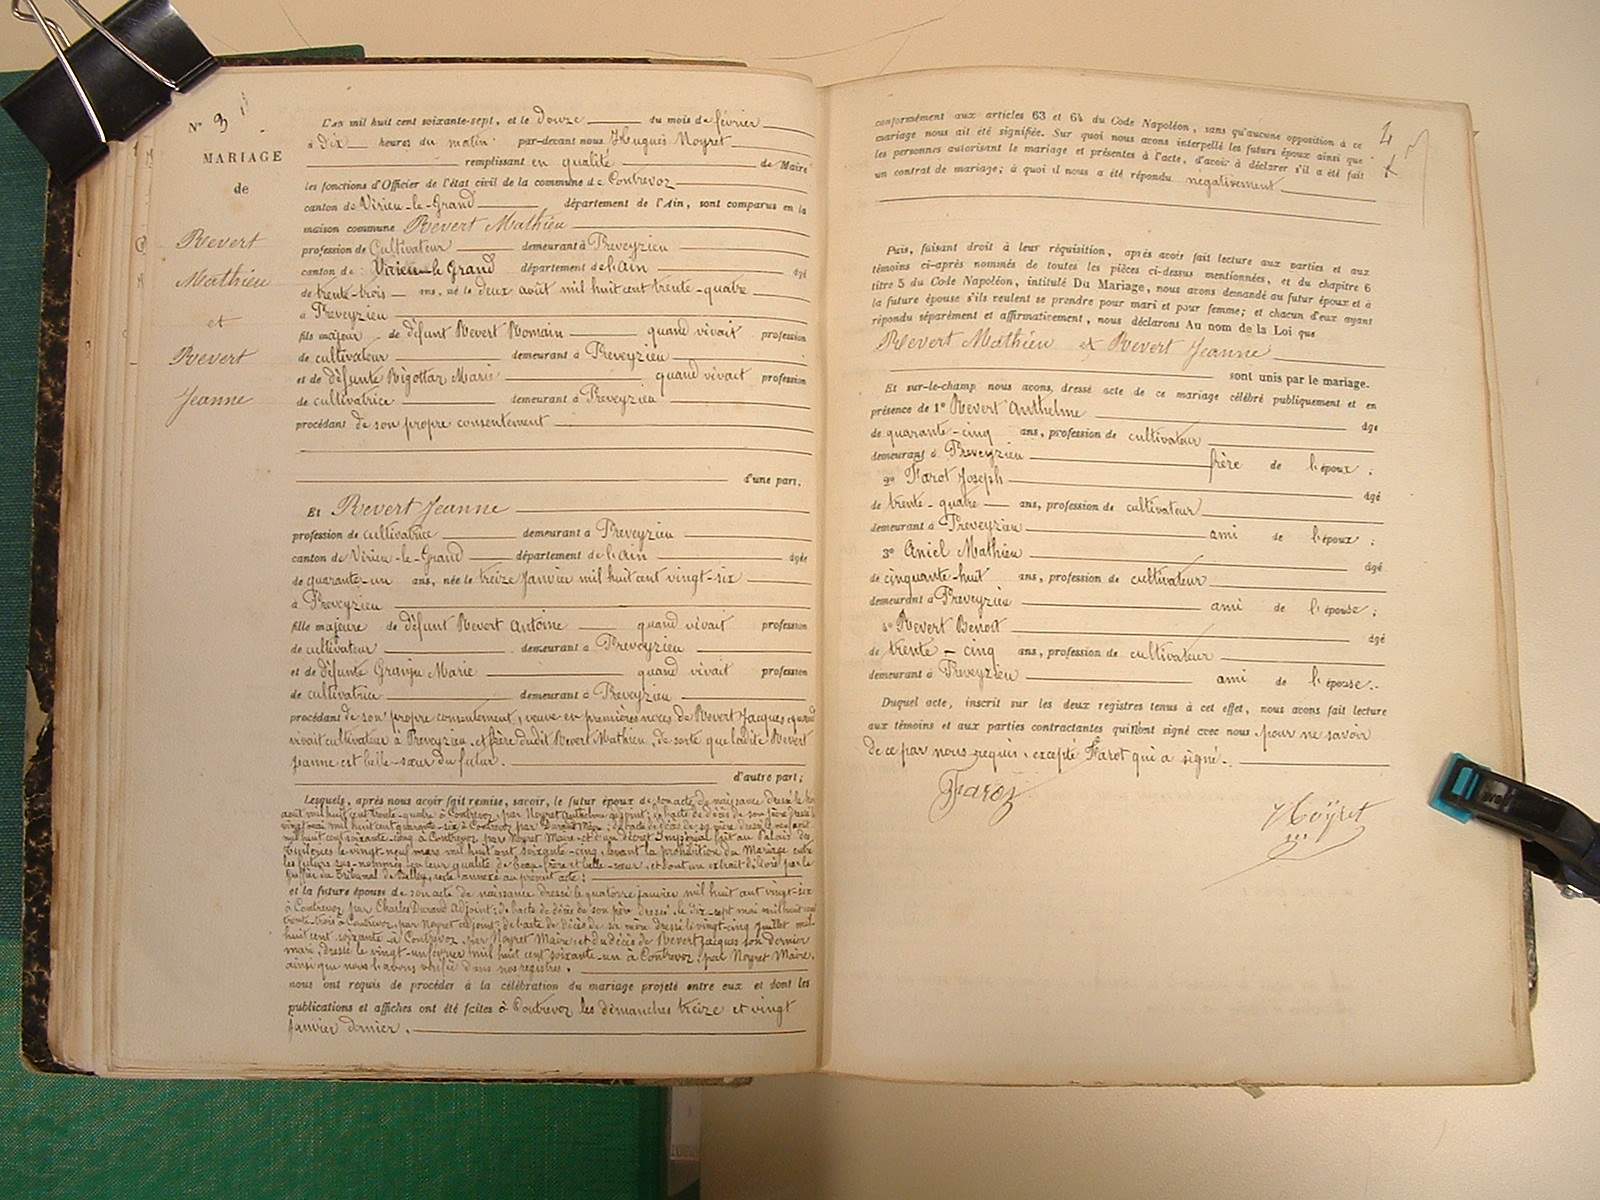 N° 3
MARIAGE
de
Revert
Mathieu
et
Revert
Jeanne
L'an mil huit cent soixante-sept, et le douze du mois de février
à dix heures du matin par-devant nous Hugues Noyret
remplissant en qualité de Maire
les fonctions d'Officier de l'état civil de la commune de Contrevoz
canton de Virieu-le-Grand département de l'Ain, sont comparus en la
maison commune Revert Mathieu
profession de Cultivateur demeurant à Preveyzieu
canton de Virieu-le Grand département de l'Ain âgé
de trente-trois ans, né le deux août mil huit cent trente-quatre
à Preveyzieu
fils majeur de défunt Revert Romain quand vivait profession
de cultivateur demeurant à Preveyzieu
et de défunte Rigottar Marie quand vivait profession
de cultivatrice demeurant à Preveyzieu
procédant de son propre consentement
d'une part,
Et Revert Jeanne
profession de cultivatrice demeurant à Preveyzieu
canton de Virieu-le-Grand département de l'Ain âgée
de quarante-un ans, née le treize Janvier mil huit cent vingt-six
à Preveyzieu
fille majeure de défunt Revert Antoine quand vivait profession
de cultivateur demeurant à Preveyzieu
et de défunte Granju Marie quand vivait profession
de cultivatrice demeurant à Preveyzieu
procédant de son propre consentement, veuve en premières noces de Revert Jacques quand
vivait cultivateur à Preveyzieu, et frère dudit Revert Mathieu, de sorte que ladite Revert
Jeanne est belle-sœur du futur.
d'autre part;
Lesquels, après nous avoir fait remise, savoir, le futur époux de son acte de naissance dressé le
août mil huit cent trente-quatre à Contrevoz, par Noyret Anthelme adjoint; de l'acte de décès de son père dressé le
vingt mai mil huit cent quarante-six à Contrevoz par Durand Maire; de l'acte de décès de sa mère dressé le août
mil huit cent soixante-cinq à Contrevoz, par Noyret Maire et d'un décret Impérial fait au Palais des
Tuileries le vingt-neuf mars mil huit cent soixante-cinq, levant la prohibition du Mariage entre
les futurs sus-nommés, en leur qualité de beau-frère et belle-sœur, et dont un extrait délivré par le
Greffier du Tribunal de Belley, reste annexé au présent acte;
et la future épouse de son acte de naissance dressé le quatorze janvier mil huit cent vingt-six
à Contrevoz par Charles Durand Adjoint; de l'acte de décès de son père dressé le dix-sept mai mil huit cent
trente-trois à Contrevoz, par Noyret adjoint; de l'acte de décès de sa mère dressé le vingt-cinq Juillet mil
huit cent soixante à Contrevoz, par Noyret Maire et du décès de Revert Jacques son dernier
mari, dressé le vingt-un février mil huit cent soixante-un à Contrevoz, par Noyret Maire,
ainsi que nous l'avons vérifié dans nos registres.
nous ont requis de procéder à la célébration du mariage projeté entre eux et dont les
publications et affiches ont été faites à Contrevoz les dimanches treize et vingt
Janvier dernier.
conformément aux articles 63 et 64 du Code Napoléon, sans qu'aucune opposition à ce
mariage nous ait été signifiée. Sur quoi nous avons interpellé les futurs époux ainsi que
les personnes autorisant le mariage et présentes à l'acte, d'avoir à déclarer s'il a été fait
un contrat de mariage; à quoi il nous a été répondu négativement
Puis, faisant droit à leur réquisition, après avoir fait lecture aux parties et aux
témoins ci-après nommés de toutes les pièces ci-dessus mentionnées, et du chapitre 6
titre 5 du Code Napoléon, intitulé Du Mariage, nous avons demandé au futur époux et à
la future épouse s'ils veulent se prendre pour mari et pour femme; et chacun d'eux ayant
répondu séparément et affirmativement, nous déclarons Au nom de la Loi que
Revert Mathieu et Revert Jeanne
sont unis par le mariage.
Et sur-le-champ nous avons, dressé acte de ce mariage célébré publiquement et en
présence de 1° Revert Anthelme âgé
de quarante-cinq ans, profession de cultivateur
demeurant à Preveyzieu frère de l'époux;
2° Farot Joseph âgé
de trente-quatre ans, profession de cultivateur
demeurant à Preveyzieu ami de l'époux;
3° Aniel Mathieu âgé
de cinquante-huit ans, profession de cultivateur
demeurant à Preveyzieu ami de l'épouse;
4° Revert Benoit âgé
de trente-cinq ans, profession de cultivateur
demeurant à Preveyzieu ami de l'épouse.
Duquel acte, inscrit sur les deux registres tenus à cet effet, nous avons fait lecture
aux témoins et aux parties contractantes qui n'ont signé avec nous pour ne savoir
de ce par nous requis, excepté Farot qui a signé.
Faroz
Noyret